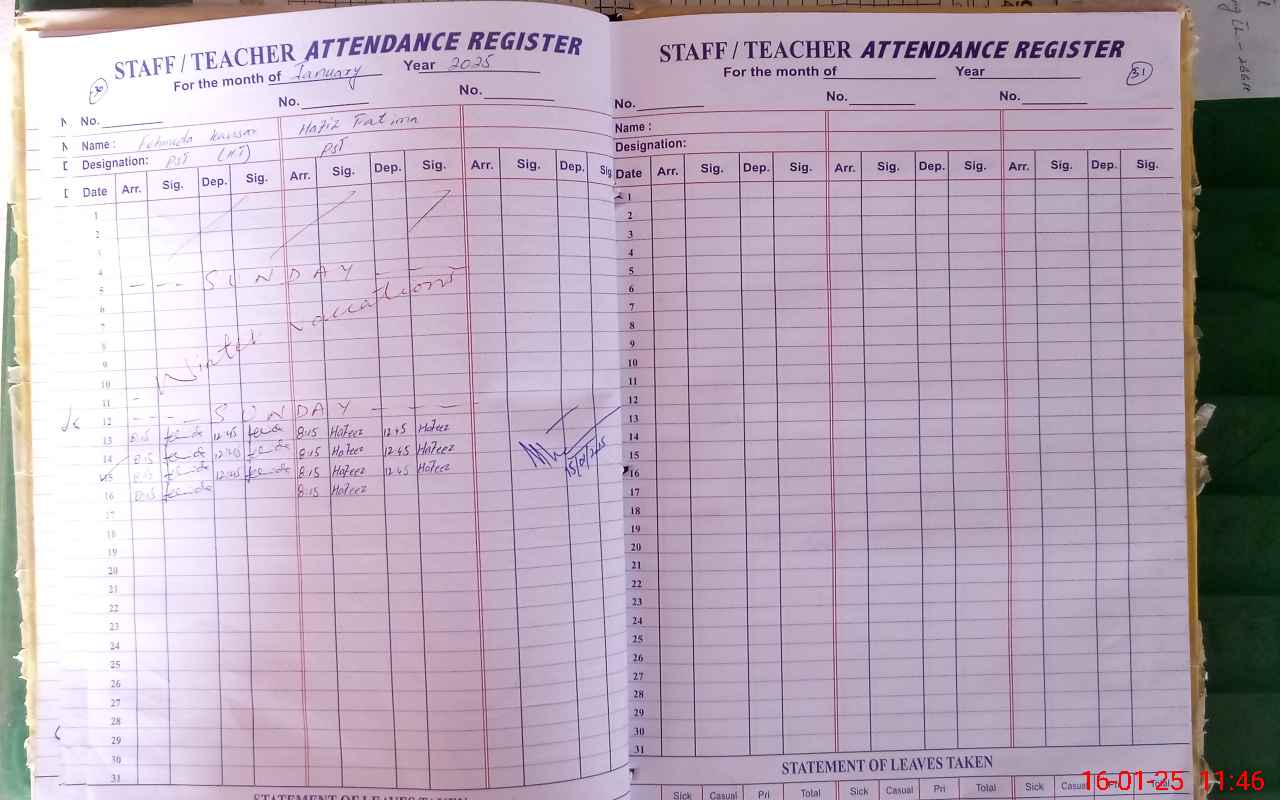 STAFF / TEACHER ATTENDANCE REGISTER
For the month of January Year 2025
30
No. No. No.
Name : Kausar Hafiz Fatima
Designation: PST (HT) PST
Date Arr. Sig. Dep. Sig. Arr. Sig. Dep. Sig. Arr. Sig. Dep. Sig
1
2
3
4
5 - - - SUNDAY - - -
6
7
8
9
10
Winter Vaccations
11
12 - - - SUNDAY - - -
13 8:15 12:45 8:15 Hafeez 12:45 Hafeez
14 8:15 12:45 8:15 Hafeez 12:45 Hafeez
15 8:15 12:45 8:15 Hafeez 12:45 Hafeez
15/01/2025
16 8:15 8:15 Hafeez
17
18
19
20
21
22
23
24
25
26
27
28
29
30
31
STATEMENT OF LEAVES TAKEN
STAFF / TEACHER ATTENDANCE REGISTER
For the month of Year
31
No. No. No.
Name :
Designation:
Date Arr. Sig. Dep. Sig. Arr. Sig. Dep. Sig. Arr. Sig. Dep. Sig.
1
2
3
4
5
6
7
8
9
10
11
12
13
14
15
16
17
18
19
20
21
22
23
24
25
26
27
28
29
30
31
STATEMENT OF LEAVES TAKEN
Sick Casual Pri Total Sick Casual Pri Total Sick Casual Pri Total
16-01-25 11:46